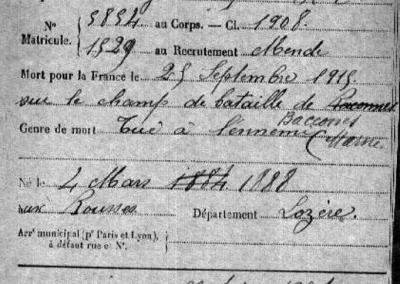 Nº Matricule. { 5854 au Corps. — Cl. 1908.
1529 au Recrutement Mende
Mort pour la France le 25 Septembre 1915
sur le champ de bataille de
Baccones
Genre de mort Tué à l'ennemi (Marne
Né le 4 Mars 1884 1888
aux Rousses Département Lozère.
Arrt municipal (pr Paris et Lyon),
à défaut rue et Nº.